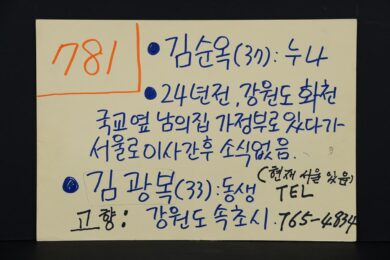 781
● 김순옥(37): 누나
● 24년전, 강원도 화천
국교옆 남의집 가정부로있다가
서울로이사간후 소식없음.
● 김광복(33): 동생 (현재 서울 있음)
고향: 강원도 속초시. TEL 765-4834